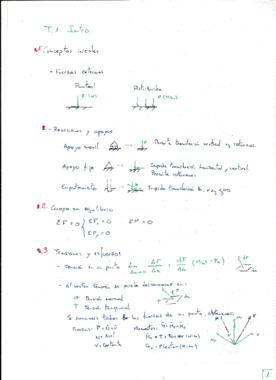 T.1 Intro
1. Conceptos iniciales
- Fuerzas externas
Puntual
Distribuida
P (N)
P (N/m)
- Reacciones y apoyos
Apoyo movil → Permite translación vertical y rotaciones.
Apoyo fijo → Impide translación horizontal y vertical.
Permite rotaciones
Empotramiento → Impide translación
2. Cuerpo en equilibrio
ΣF = 0 { ΣFₓ = 0 ΣM = 0
ΣFᵧ = 0
3. Tensiones y esfuerzos
- Tensión en un punto lim ΔF/ΔA = dF/dA (N/m² = Pa)
- El vector tensión se puede descomponer en:
σ Tensión normal
τ Tensión tangencial
Si sumamos todas las fuerzas de un punto, obtenemos
Fuerzas: Momentos:
N = Axil
V = Cortante
1